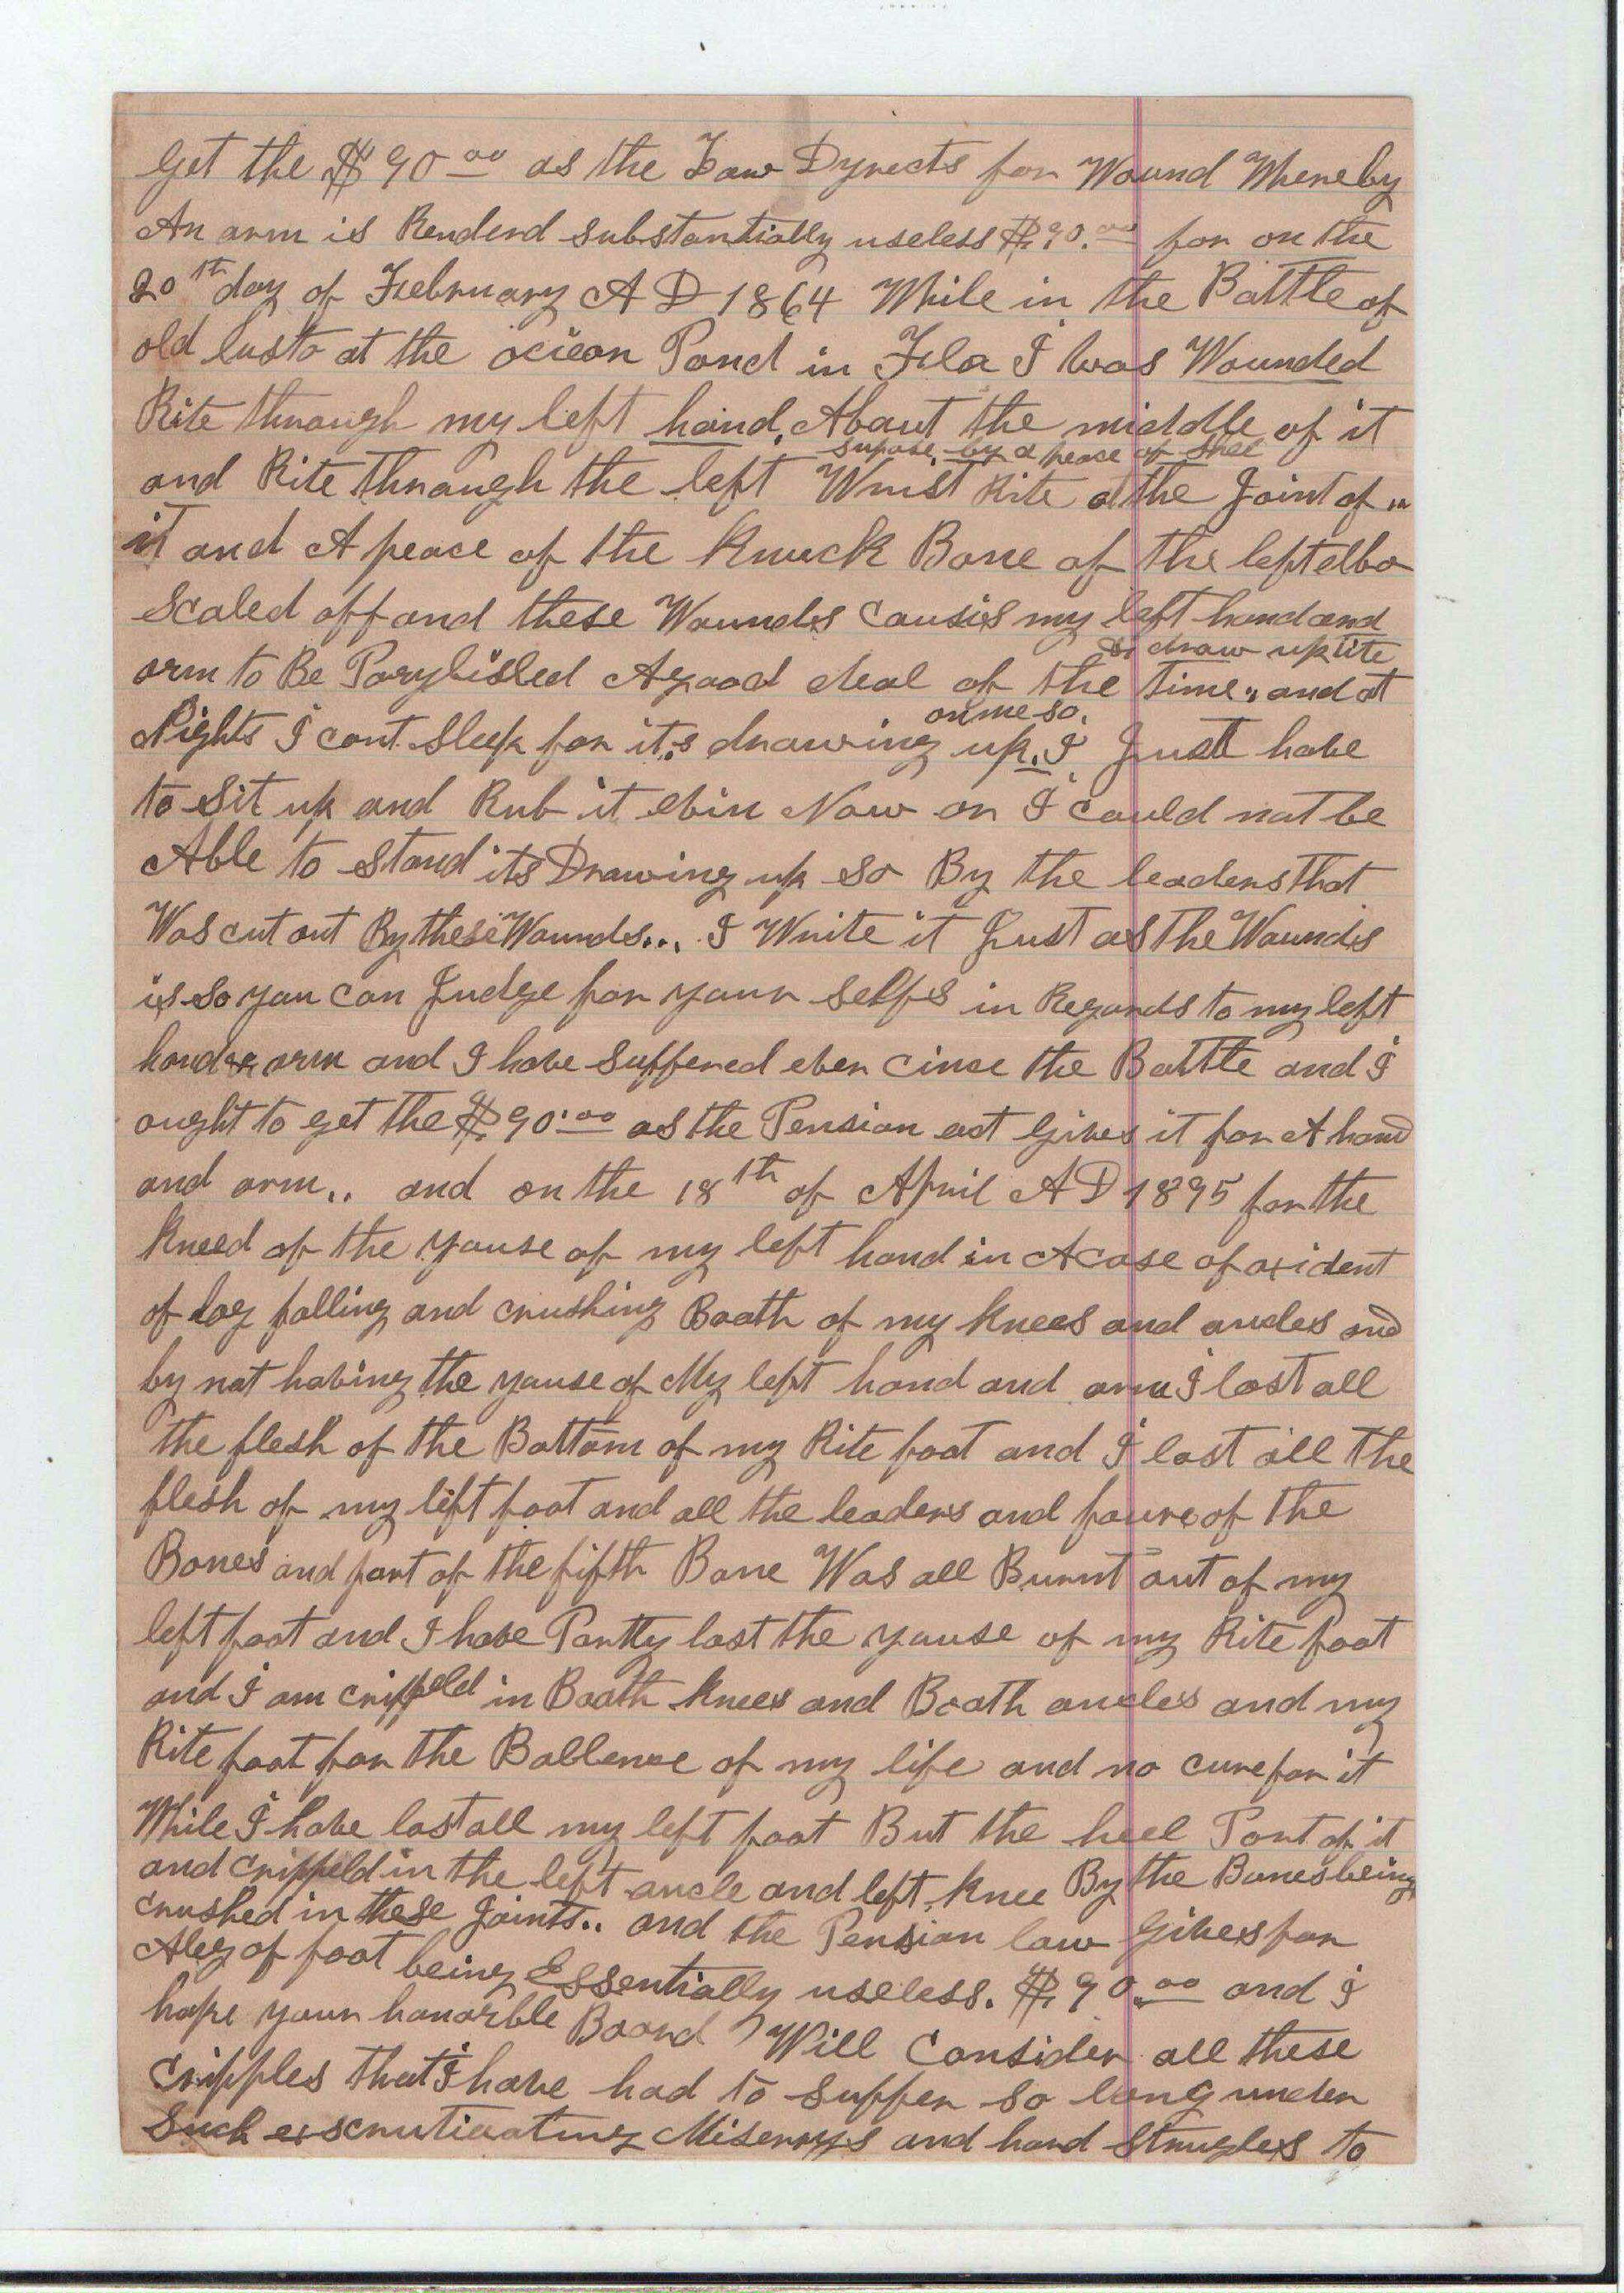 Get the $90.00 as the Law Dyrects for Wound Whereby
An arm is Renderd substantially useless $90.00 for on the
20th day of Feebruary A D 1864 While in the Battle of
old lusto at the ociean Pond in Fla I was Wounded
Rite through my left hand. About the middle of it
supose by a peace of shel
and Rite through the left Wrist Rite at the Joint of
it and A peace of the Knuck Bone of the left elbo
scaled off and these Wounds causis my left hand and
draw up tite
arm to Be Parylisled A good deal of the time. and at
on me so.
Nights I cant sleep for it,s drawing up. I Just have
to sit up and Rub it ebin Now or I could not be
Able to stand its Drawing up so By the leaders that
Was cut out By these Wounds... I Write it Just as the Wounds
is so you can Judge for your selfs in Regards to my left
hand or arm and I have suffered ever cince the Battle and I
ought to get the $90.00 as the Pension act Gives it for A hand
and arm.. and on the 18th of April A D 1895 for the
Kneed of the youse of my left hand in A case of axident
of log falling and crushing Boath of my knees and ancles and
by not having the youse of My left hand and arm I lost all
the flesh of the Bottom of my Rite foot and I lost all the
flesh of my left foot and all the leaders and foure of the
Bones and part of the fifth Bone Was all Burnt out of my
left foot and I have Partty lost the youse of my Rite foot
and I am crippeld in Boath knees and Boath ancles and my
Rite foot for the Ballence of my life and no cure for it
While I have lost all my left foot But the heel Part of it
and crippeld in the left ancle and left knee By the Bones being
crushed in these Joints.. and the Pension law Gives for
A leg of foot being Essentially useless. $90.00 and I
hope your honorble Board Will Consider all these
cripples that I have had to suffer so long under
such exscrutiaating Miserys and hard strugles to